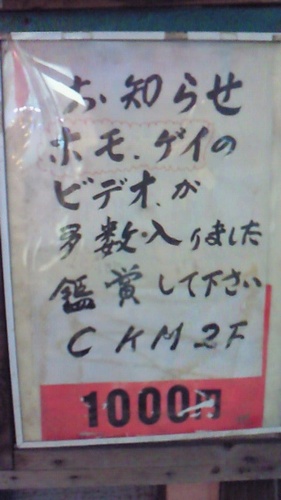 お知らせ
ホモ.ゲイの
ビデオ.が
多数.入りました
鑑賞して下さい
CKM2F
1000円